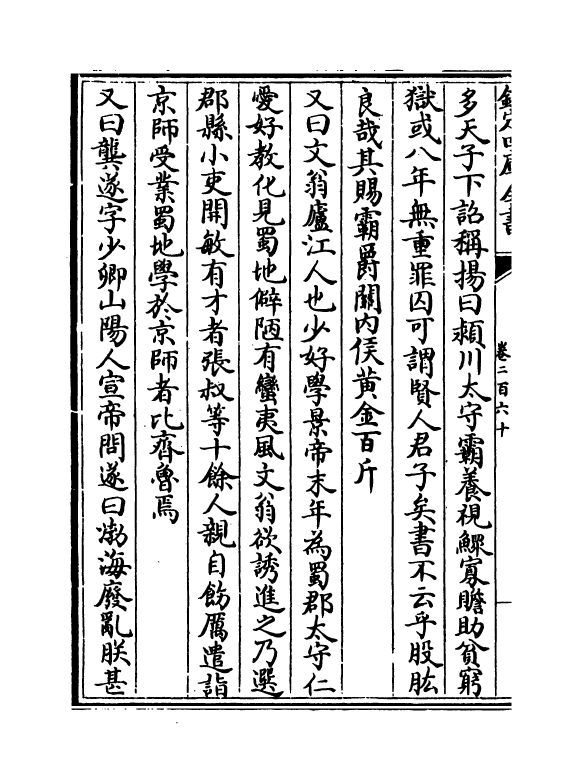 欽定四庫全書
卷二百六十
多天子下詔稱揚曰潁川太守霸養視鰥寡贍助貧窮
獄或八年無重罪囚可謂賢人君子矣書不云乎股肱
良哉其賜霸爵關内侯黄金百斤
又曰文翁廬江人也少好學景帝末年為蜀郡太守仁
愛好教化見蜀地僻陋有蠻夷風文翁欲誘進之乃選
郡縣小吏開敏有才者張叔等十餘人親自飭厲遣詣
京師受業蜀地學於京師者比齊魯焉
又曰龔遂字少卿山陽人宣帝問遂曰渤海廢亂朕甚